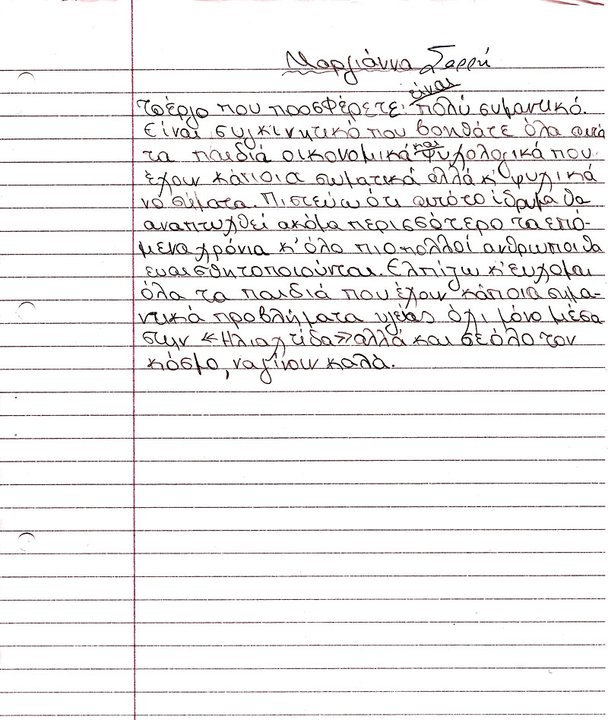 Μαργιάννα Σαρρή
είναι
Το έργο που προσφέρετε πολύ σημαντικό.
Είναι συγκινητικό που βοηθάτε όλα αυτά
τα παιδιά οικονομικά και ψυχολογικά που
έχουν κάποια σωματικά αλλά κ' ψυχικά
νοσήματα. Πιστεύω ότι αυτό το ίδρυμα θα
αναπτυχθεί ακόμα περισσότερο τα επό-
μενα χρόνια κ' όλο πιο πολλοί ανθρωποι θα
ευαισθητοποιούνται. Ελπίζω κ' ευχομαι
όλα τα παιδιά που έχουν κάποια σημα-
ντικά προβλήματα υγείας όχι μόνο μέσα
στην «Ηλιαχτίδα» αλλά και σε όλο τον
κόσμο, να γίνουν καλά.